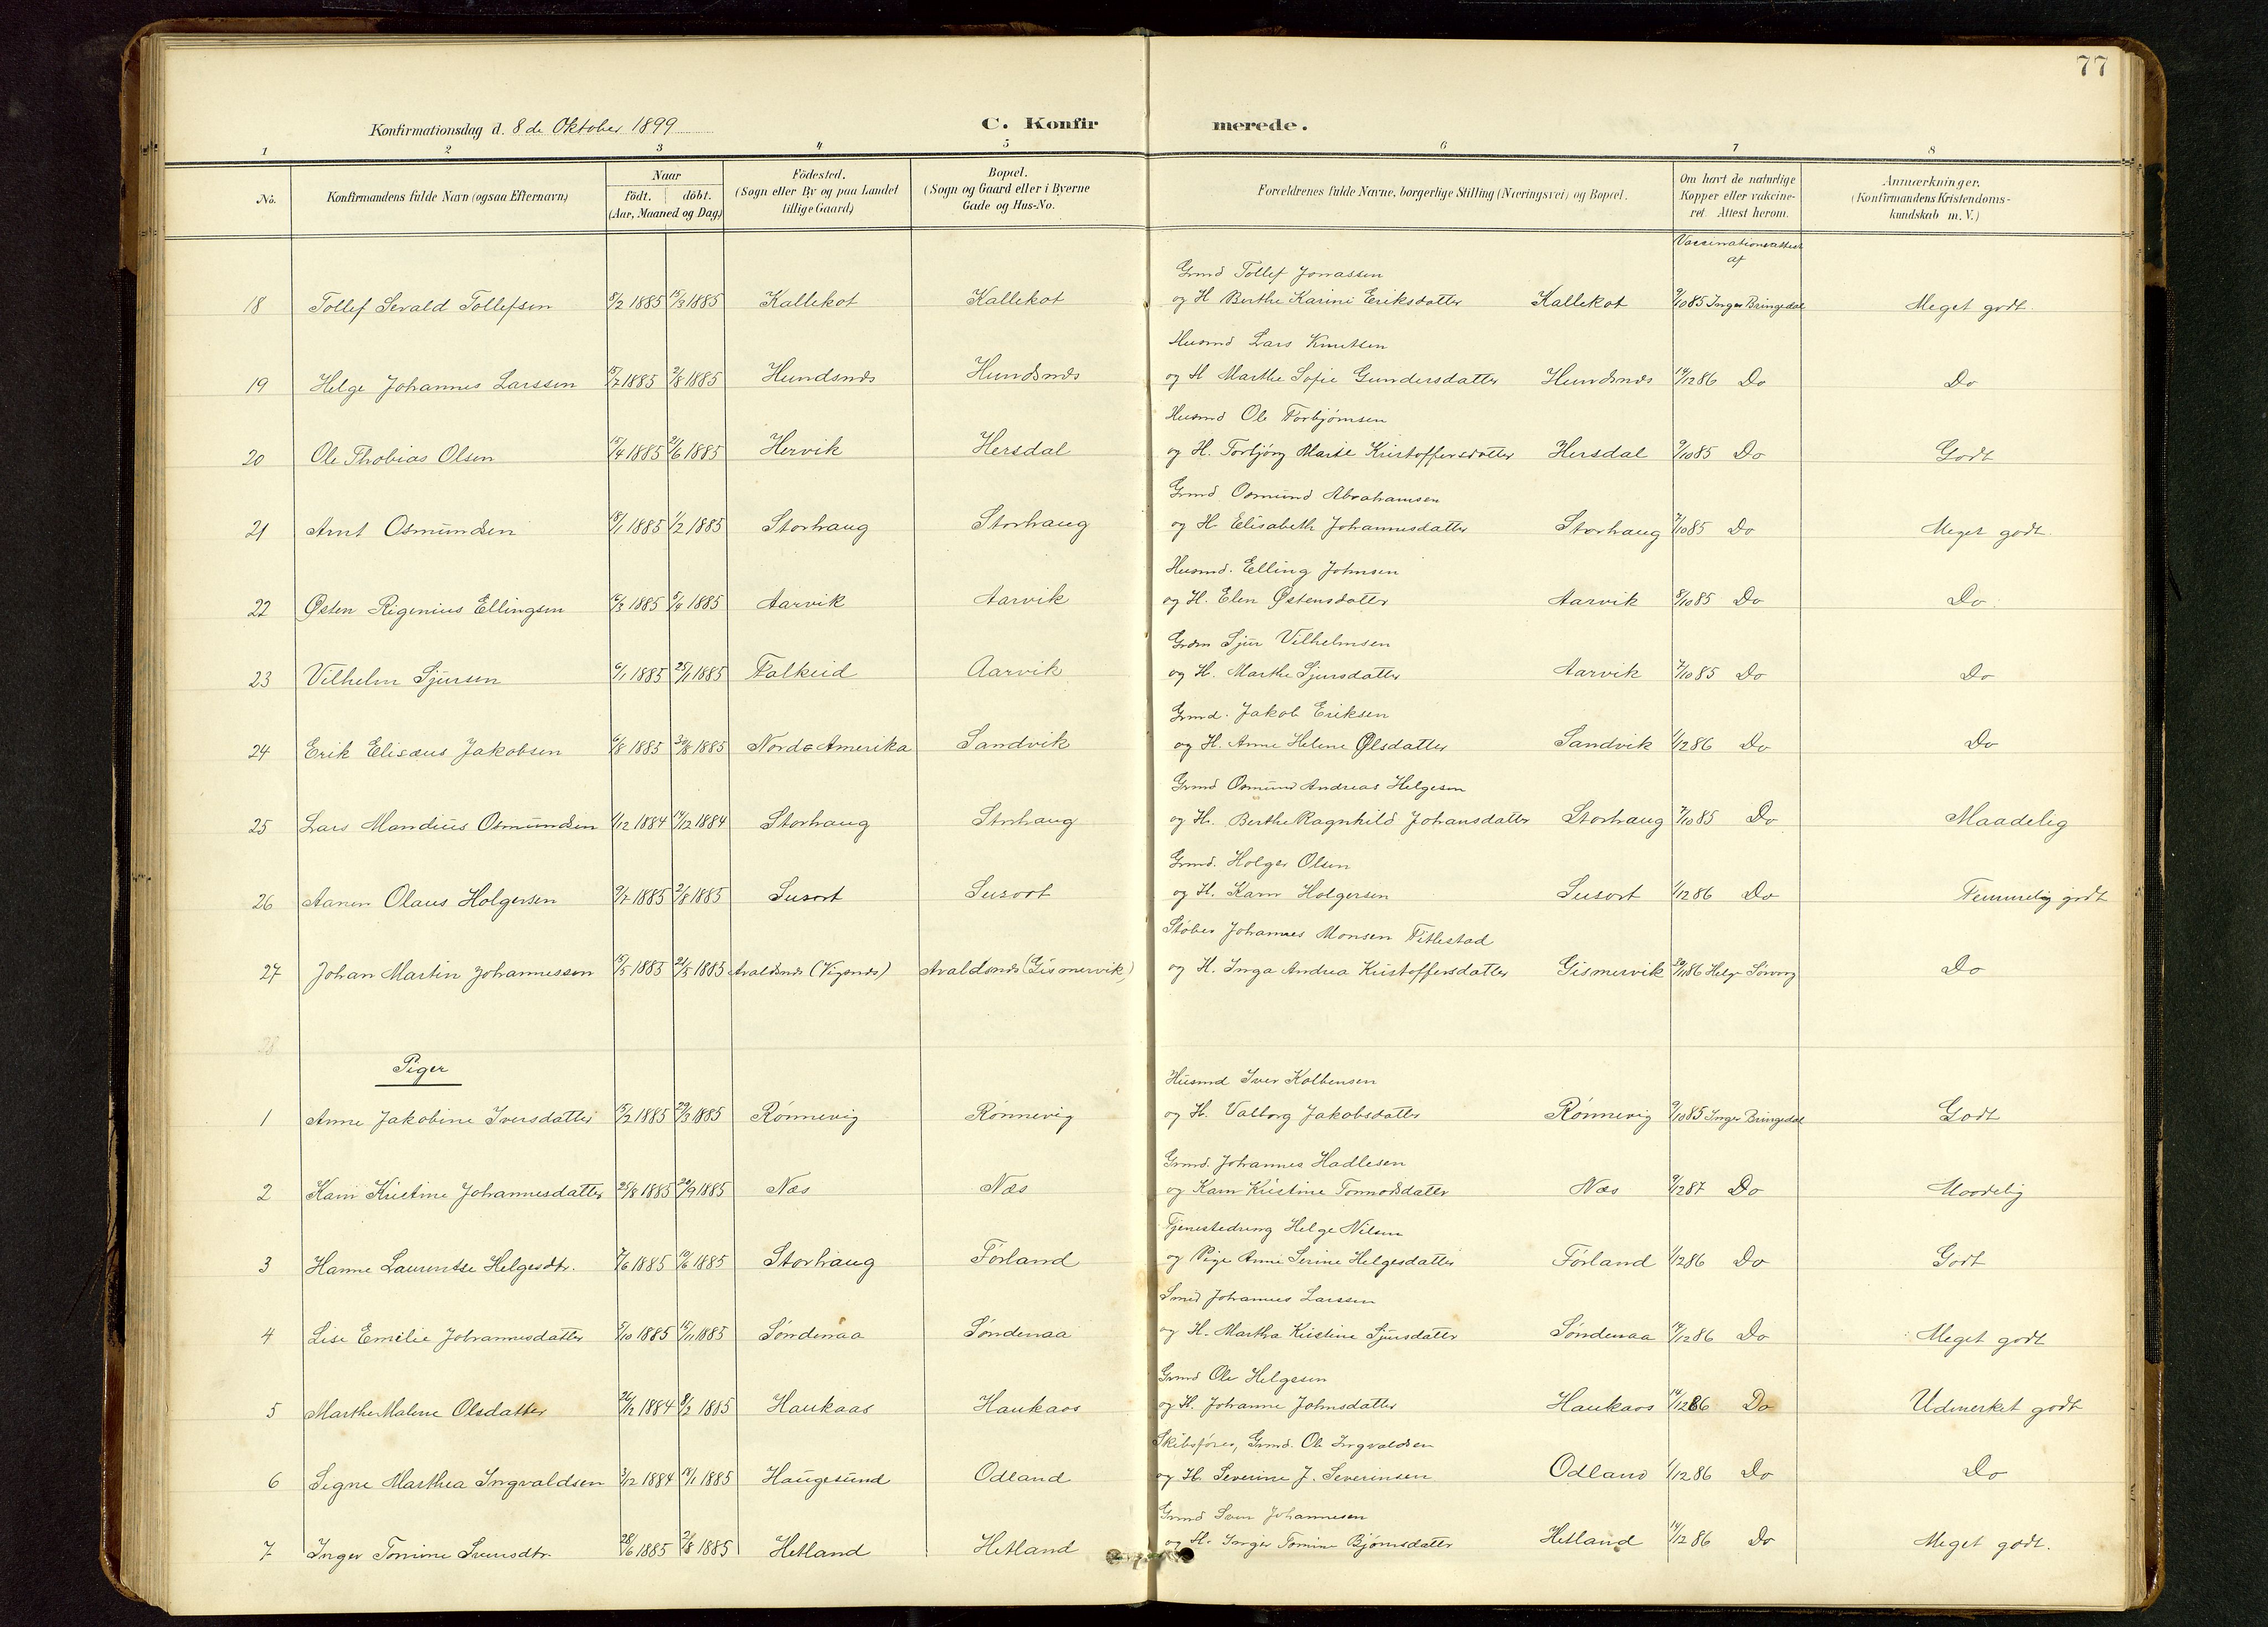 77
Konfirmationsdag d. 8de Oktober 1899
C. Konfirmerede.
1 2 3 4 5 6 7 8
No.
Konfirmandens fulde Navn (ogsaa Efternavn)
Naar
födt. döbt.
(Aar, Maaned og Dag)
Födested.
(Sogn eller By og paa Landet
tillige Gaard)
Bopæl.
(Sogn og Gaard eller i Byerne
Gade og Hus-No.
Forældrenes fulde Navne, borgerlige Stilling (Næringsvei) og Bopæl.
Om havt de naturlige
Kopper eller vakcine-
ret. Attest herom.
Anmærkninger.
(Konfirmandens Kristendoms-
kundskab m. V.)
Vaccinationsattest
af
Grmd Tollef Jonassen
18 Tollef Sevald Tollefsen 8/2 1885 15/3 1885 Kallekot Kallekot og H Berthe Karine Eriksdatter Kallekot 9/10 85 Inger Bringedal Meget godt.
Husmd Lars Knutsen
19 Helge Johannes Larssen 15/7 1885 2/8 1885 Hundsnes Hundsnes og H Marthe Sofie Gundersdatter Hundsnes 14/12 86 Do Do
Husmd Ole Torbjørnsen
20 Ole Thobias Olsen 15/4 1885 21/6 1885 Hervik Hersdal og H. Torbjørg Marie Kristoffersdatter Hersdal 9/10 85 Do Godt
Grmd Osmund Abrahamsen
21 Arnt Osmundsen 18/1 1885 1/2 1885 Storhaug Storhaug og H. Elisabeth Johannesdatter Storhaug 7/10 85 Do Meget godt.
Husmd. Elling Johnsen
22 Østen Rigenius Ellingsen 16/3 1885 5/4 1885 Aarvik Aarvik og H. Elen Østensdatter Aarvik 8/10 85 Do Do
Grdm Sjur Vilhelmsen
23 Vilhelm Sjursen 6/1 1885 25/1 1885 Falkeid Aarvik og H. Marthe Sjursdatter Aarvik 7/10 85 Do Do
Grmd. Jakob Eriksen
24 Erik Elisæus Jakobsen 6/8 1885 30/8 1885 Nord Amerika Sandvik og H. Anne Helene Olsdatter Sandvik 1/12 86 Do Do
Grmd Osmund Andreas Helgesen
25 Lars Mandius Osmundsen 1/12 1884 14/12 1884 Storhaug Storhaug og H. Berthe Ragnhild Johansdatter Storhaug 7/10 85 Do Maadelig
Grmd. Holger Olsen
26 Aanen Olaus Holgersen 9/7 1885 2/8 1885 Susort Susort og H. Karn Holgersen Susort 1/12 86 Do Temmelig godt
Støber Johannes Monsen Titlestad
27 Johan Martin Johannessen 15/5 1885 21/5 1885 Avaldsnes (Vigsnes) Avaldsnes (Gismervik) og H. Inga Andrea Kristoffersdatter Gismervik 30/11 86 Helge Do
28
Piger
Husmd Iver Kolbensen
1 Anne Jakobine Iversdatter 15/2 1885 29/3 1885 Rönnevig Rönnevig og H. Valborg Jakobsdatter Rönnevig 9/10 85 Inger Bringedal Godt
Grmd. Johannes Hadlesen
2 Kari Kristine Johannesdatter 25/8 1885 20/9 1885 Næs Næs og Karn Kristine Tormodsdatter Næs 9/12 87 Do Maadelig
Tjenestedreng Helge Nilsen
3 Hanne Laurentse Helgesdtr. 7/6 1885 10/6 1885 Storhaug Förland og Pige Anne Serine Helgesdatter Förland 1/12 86 Do Godt
Smed Johannes Larssen
4 Lise Emilie Johannesdatter 5/10 1885 15/11 1885 Söndenaa Söndenaa og H. Martha Kristine Sjursdatter Söndenaa 14/12 86 Do Meget godt
Grmd Ole Helgesen
5 Marthe Malene Olsdatter 26/12 1884 8/2 1885 Haukaas Haukaas og H. Johanne Johnsdatter Haukaas 14/12 86 Do Udmerket godt
Skibsfører, Grmd. Ole Ingvaldsen
6 Signe Marthea Ingvaldsen 3/12 1884 18/1 1885 Haugesund Odland og H. Severine J. Severinsen Odland 1/12 86 Do Do
Grmd Sven Johannesen
7 Inger Tomine Svensdtr. 28/6 1885 2/8 1885 Hetland Hetland og H. Inger Tomine Bjørnsdatter Hetland 14/12 86 Do Meget godt.